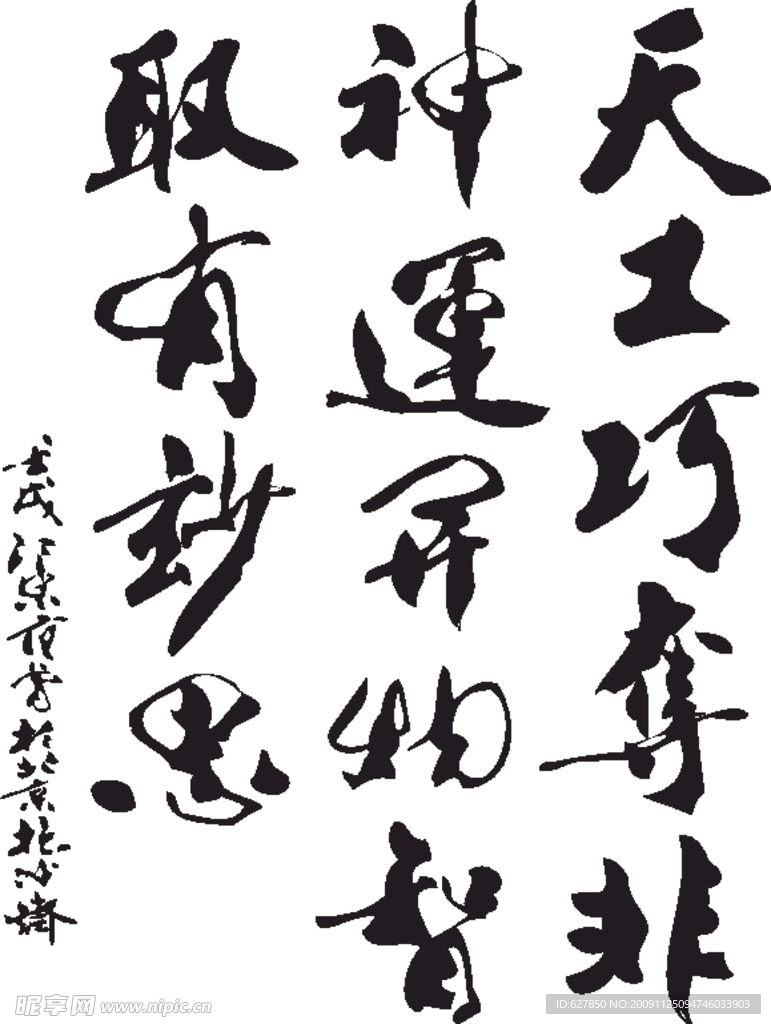 天工巧奪非
神運開物智
取有妙思
昵享网 www.nipic.cn
ID:627850 NO:20091125094746033903